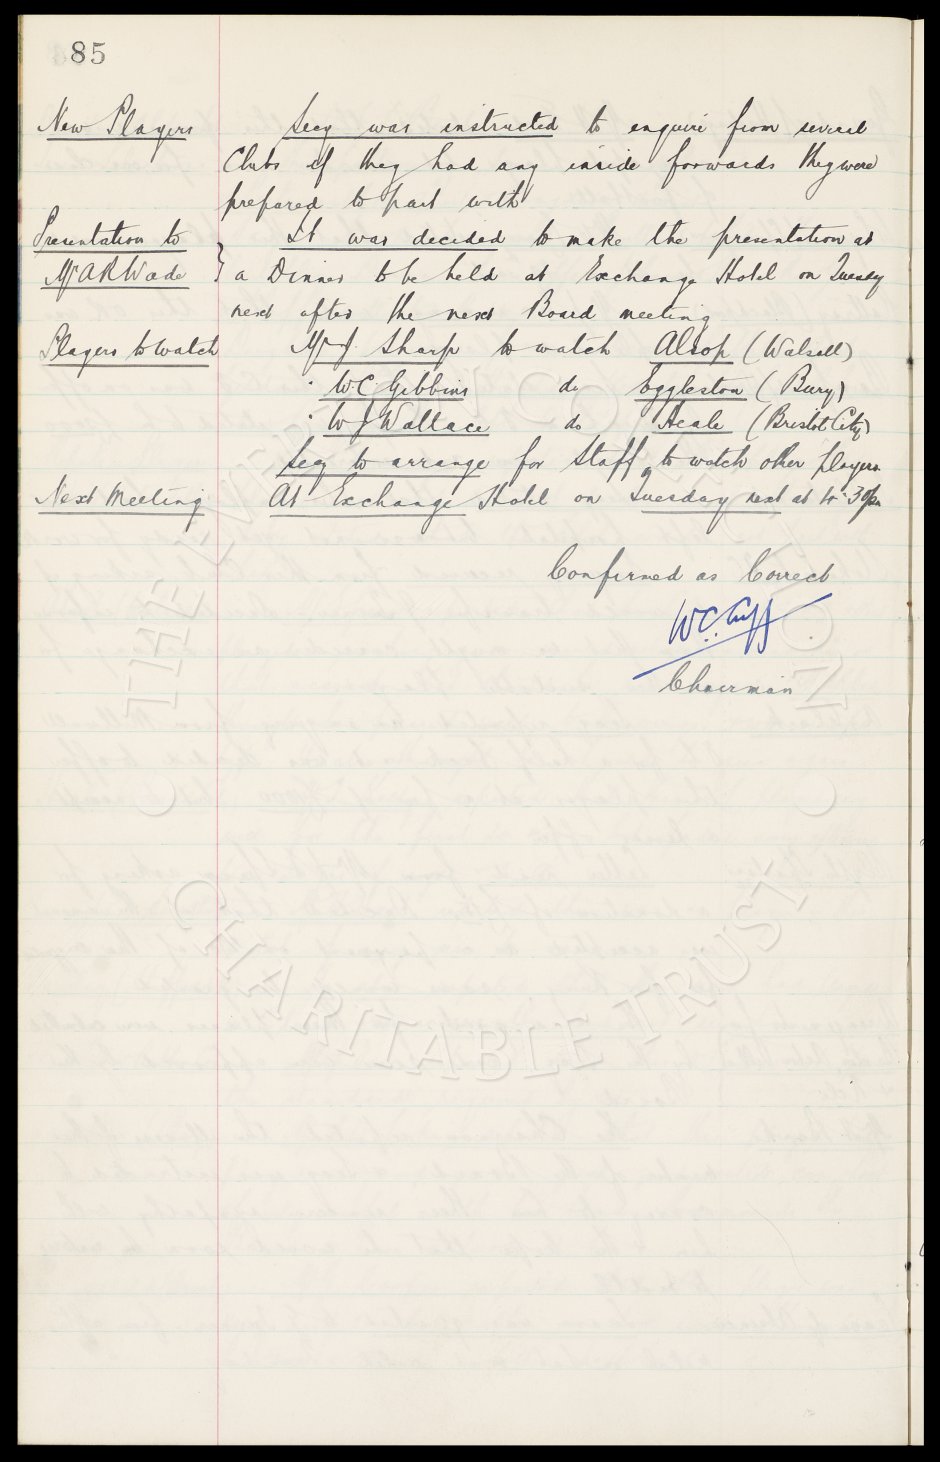 85
New Players Secy was instructed to enquire from several
Clubs if they had any inside forwards they were
prepared to part with
Presentation to It was decided to make the presentation at
Mr A R Wade } a Dinner to be held at Exchange Hotel on Tuesday
next after the next Board meeting
Players to watch Mr J. Sharp to watch Alsop (Walsall)
" W.C. Gibbins do Eggleston (Bury)
" W J Wallace do Heale (Bristol City)
Secy to arrange for Staff to watch other players.
Next Meeting At Exchange Hotel on Tuesday next at 4.30pm
Confirmed as Correct
W.C. Cuff
Chairman
THE EVERTON COLLECTION
CHARITABLE TRUST